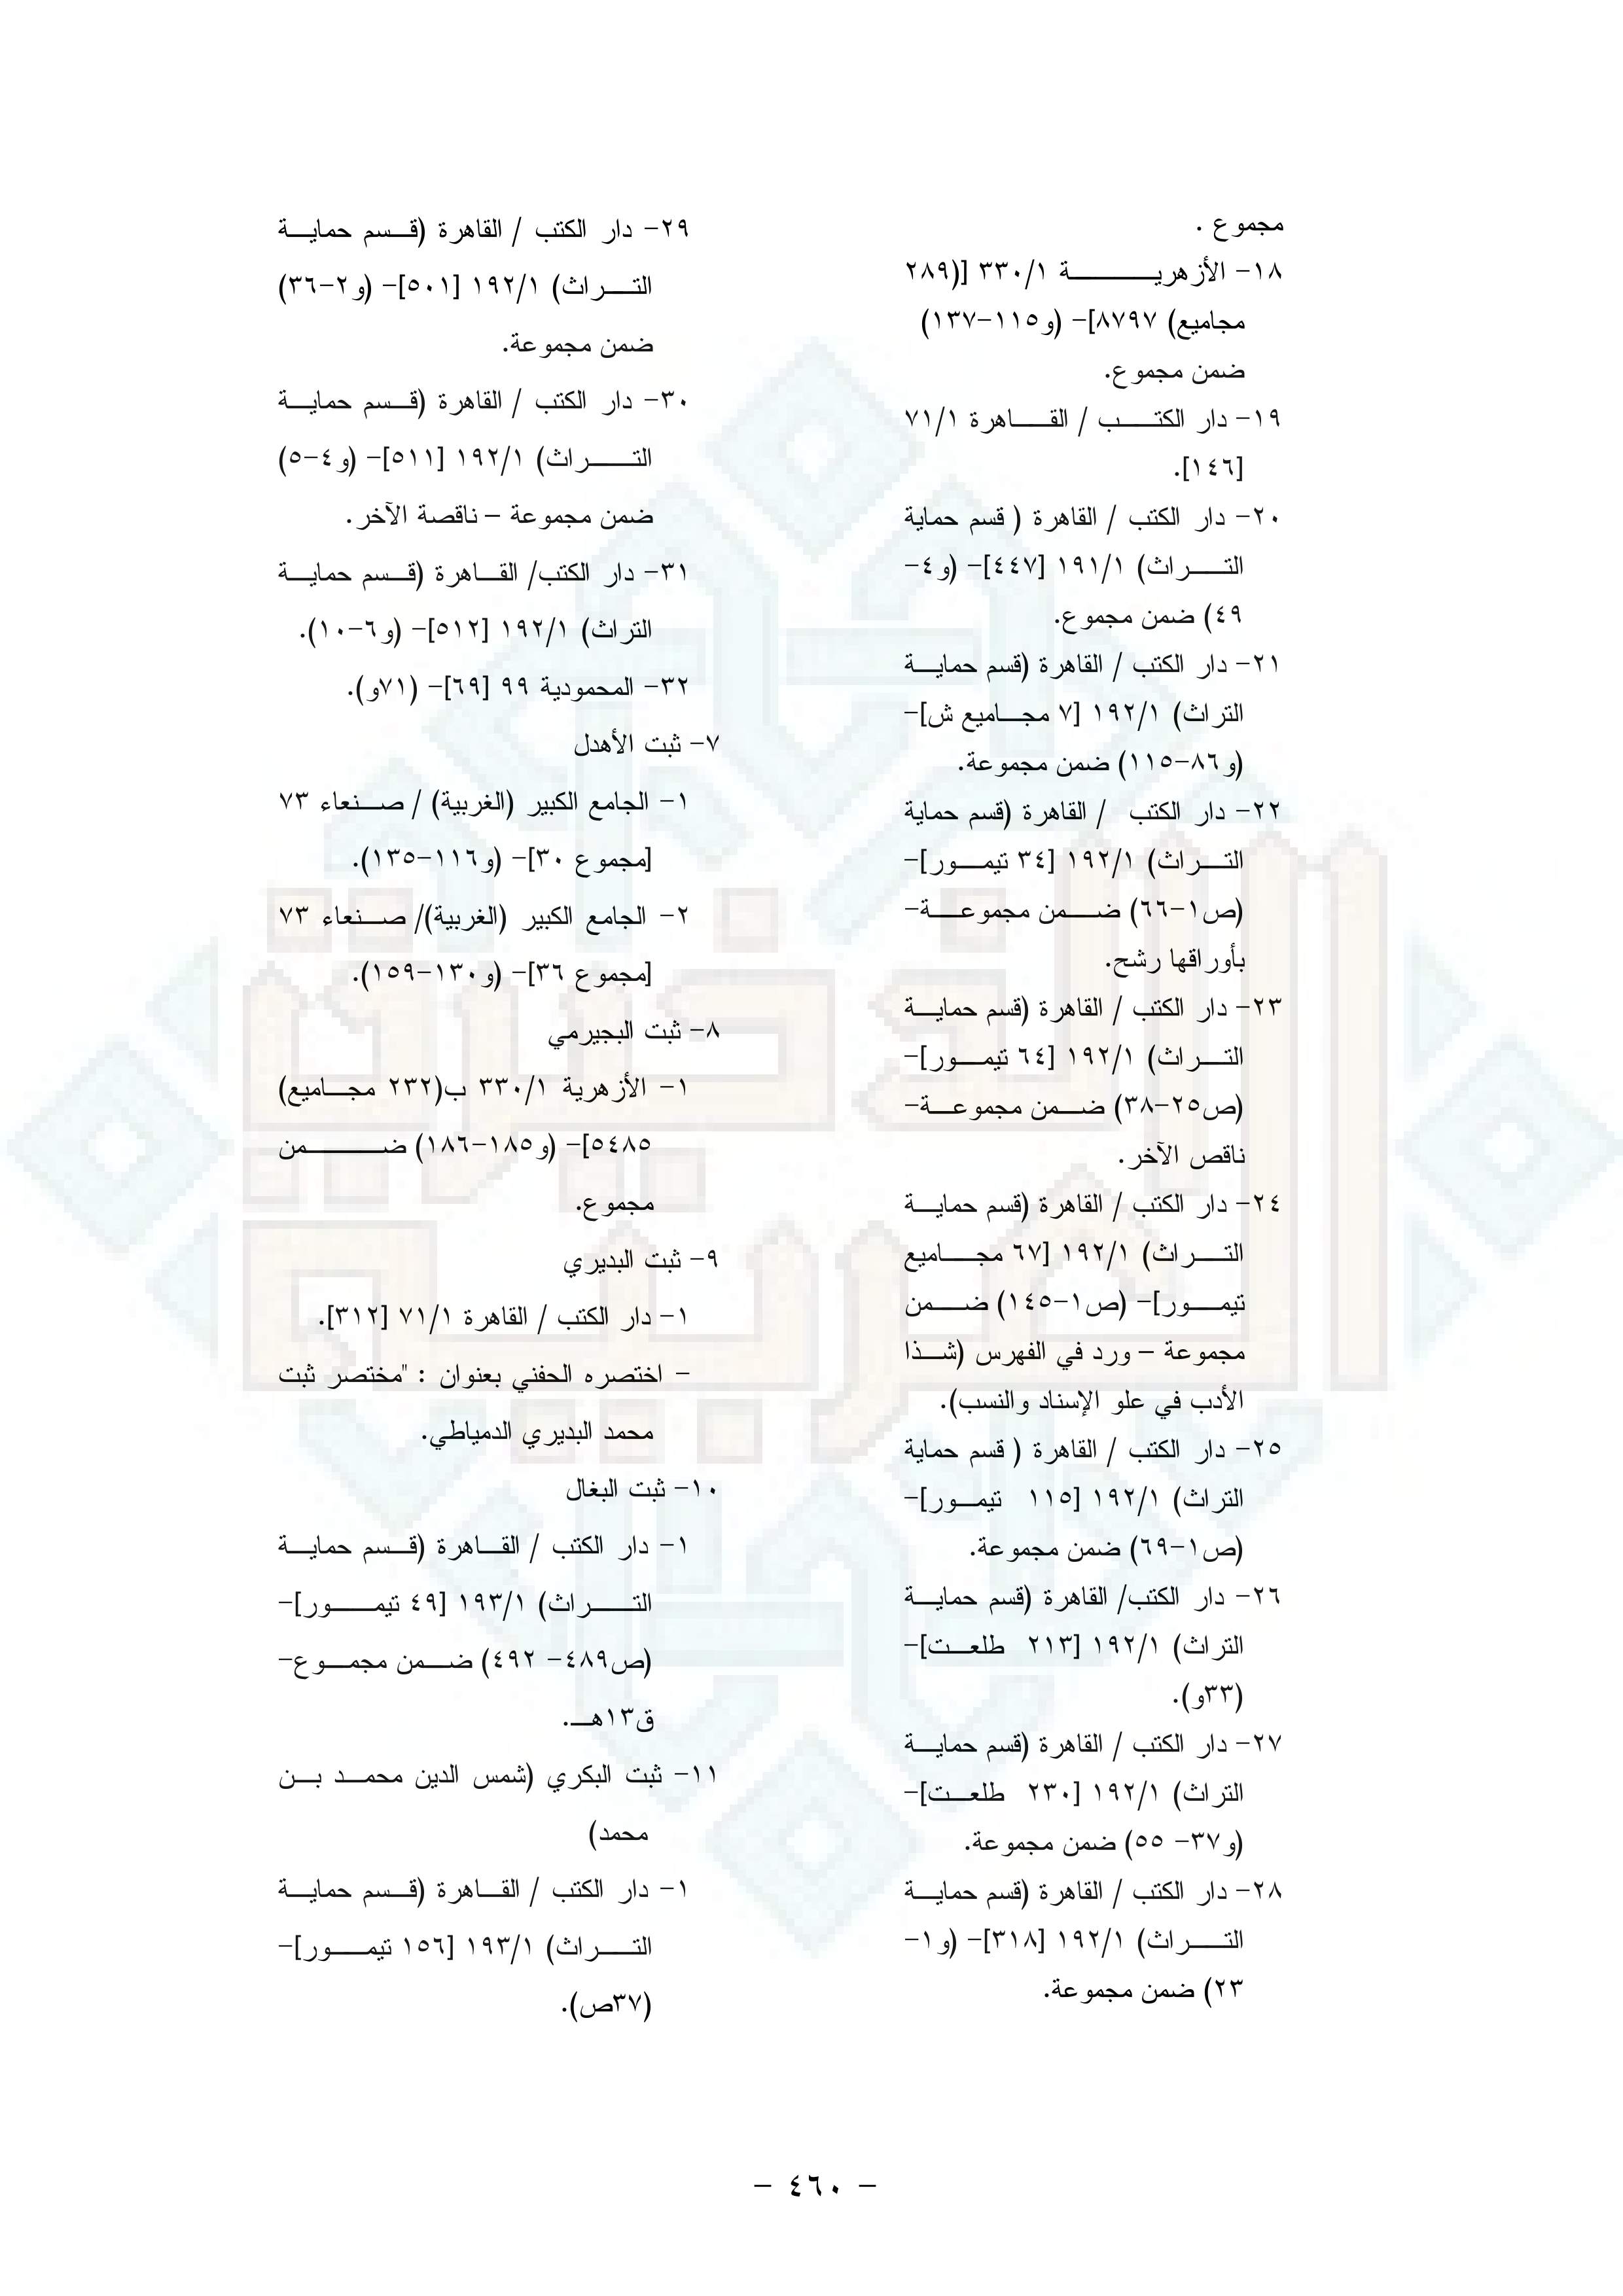 مجموع .
١٨- الأزهرية ٣٣٠/١ [(٢٨٩
مجاميع) ٨٧٩٧]- (و١١٥-١٣٧)
ضمن مجموع.
١٩- دار الكتب / القاهرة ٧١/١
[١٤٦].
٢٠- دار الكتب / القاهرة ( قسم حماية
التراث) ١٩١/١ [٤٤٧]- (و٤-
٤٩) ضمن مجموع.
٢١- دار الكتب / القاهرة (قسم حماية
التراث) ١٩٢/١ [٧ مجاميع ش]-
(و٨٦-١١٥) ضمن مجموعة.
٢٢- دار الكتب / القاهرة (قسم حماية
التراث) ١٩٢/١ [٣٤ تيمور]-
(ص١-٦٦) ضمن مجموعة-
بأوراقها رشح.
٢٣- دار الكتب / القاهرة (قسم حماية
التراث) ١٩٢/١ [٦٤ تيمور]-
(ص٢٥-٣٨) ضمن مجموعة-
ناقص الآخر.
٢٤- دار الكتب / القاهرة (قسم حماية
التراث) ١٩٢/١ [٦٧ مجاميع
تيمور]- (ص١-١٤٥) ضمن
مجموعة – ورد في الفهرس (شذا
الأدب في علو الإسناد والنسب).
٢٥- دار الكتب / القاهرة ( قسم حماية
التراث) ١٩٢/١ [١١٥ تيمور]-
(ص١-٦٩) ضمن مجموعة.
٢٦- دار الكتب/ القاهرة (قسم حماية
التراث) ١٩٢/١ [٢١٣ طلعت]-
(٣٣و).
٢٧- دار الكتب / القاهرة (قسم حماية
التراث) ١٩٢/١ [٢٣٠ طلعت]-
(و٣٧- ٥٥) ضمن مجموعة.
٢٨- دار الكتب / القاهرة (قسم حماية
التراث) ١٩٢/١ [٣١٨]- (و١-
٢٣) ضمن مجموعة.
٢٩- دار الكتب / القاهرة (قسم حماية
التراث) ١٩٢/١ [٥٠١]- (و٢-٣٦)
ضمن مجموعة.
٣٠- دار الكتب / القاهرة (قسم حماية
التراث) ١٩٢/١ [٥١١]- (و٤-٥)
ضمن مجموعة – ناقصة الآخر.
٣١- دار الكتب/ القاهرة (قسم حماية
التراث) ١٩٢/١ [٥١٢]- (و٦-١٠).
٣٢- المحمودية ٩٩ [٦٩]- (٧١و).
٧- ثبت الأهدل
١- الجامع الكبير (الغربية) / صنعاء ٧٣
[مجموع ٣٠]- (و١١٦-١٣٥).
٢- الجامع الكبير (الغربية)/ صنعاء ٧٣
[مجموع ٣٦]- (و١٣٠-١٥٩).
٨- ثبت البجيرمي
١- الأزهرية ٣٣٠/١ ب(٢٣٢ مجاميع)
٥٤٨٥]- (و١٨٥-١٨٦) ضمن
مجموع.
٩- ثبت البديري
١- دار الكتب / القاهرة ٧١/١ [٣١٢].
- اختصره الحفني بعنوان : "مختصر ثبت
محمد البديري الدمياطي.
١٠- ثبت البغال
١- دار الكتب / القاهرة (قسم حماية
التراث) ١٩٣/١ [٤٩ تيمور]-
(ص٤٨٩- ٤٩٢) ضمن مجموع-
ق١٣هـ.
١١- ثبت البكري (شمس الدين محمد بن
محمد)
١- دار الكتب / القاهرة (قسم حماية
التراث) ١٩٣/١ [١٥٦ تيمور]-
(٣٧ص).
- ٤٦٠ -